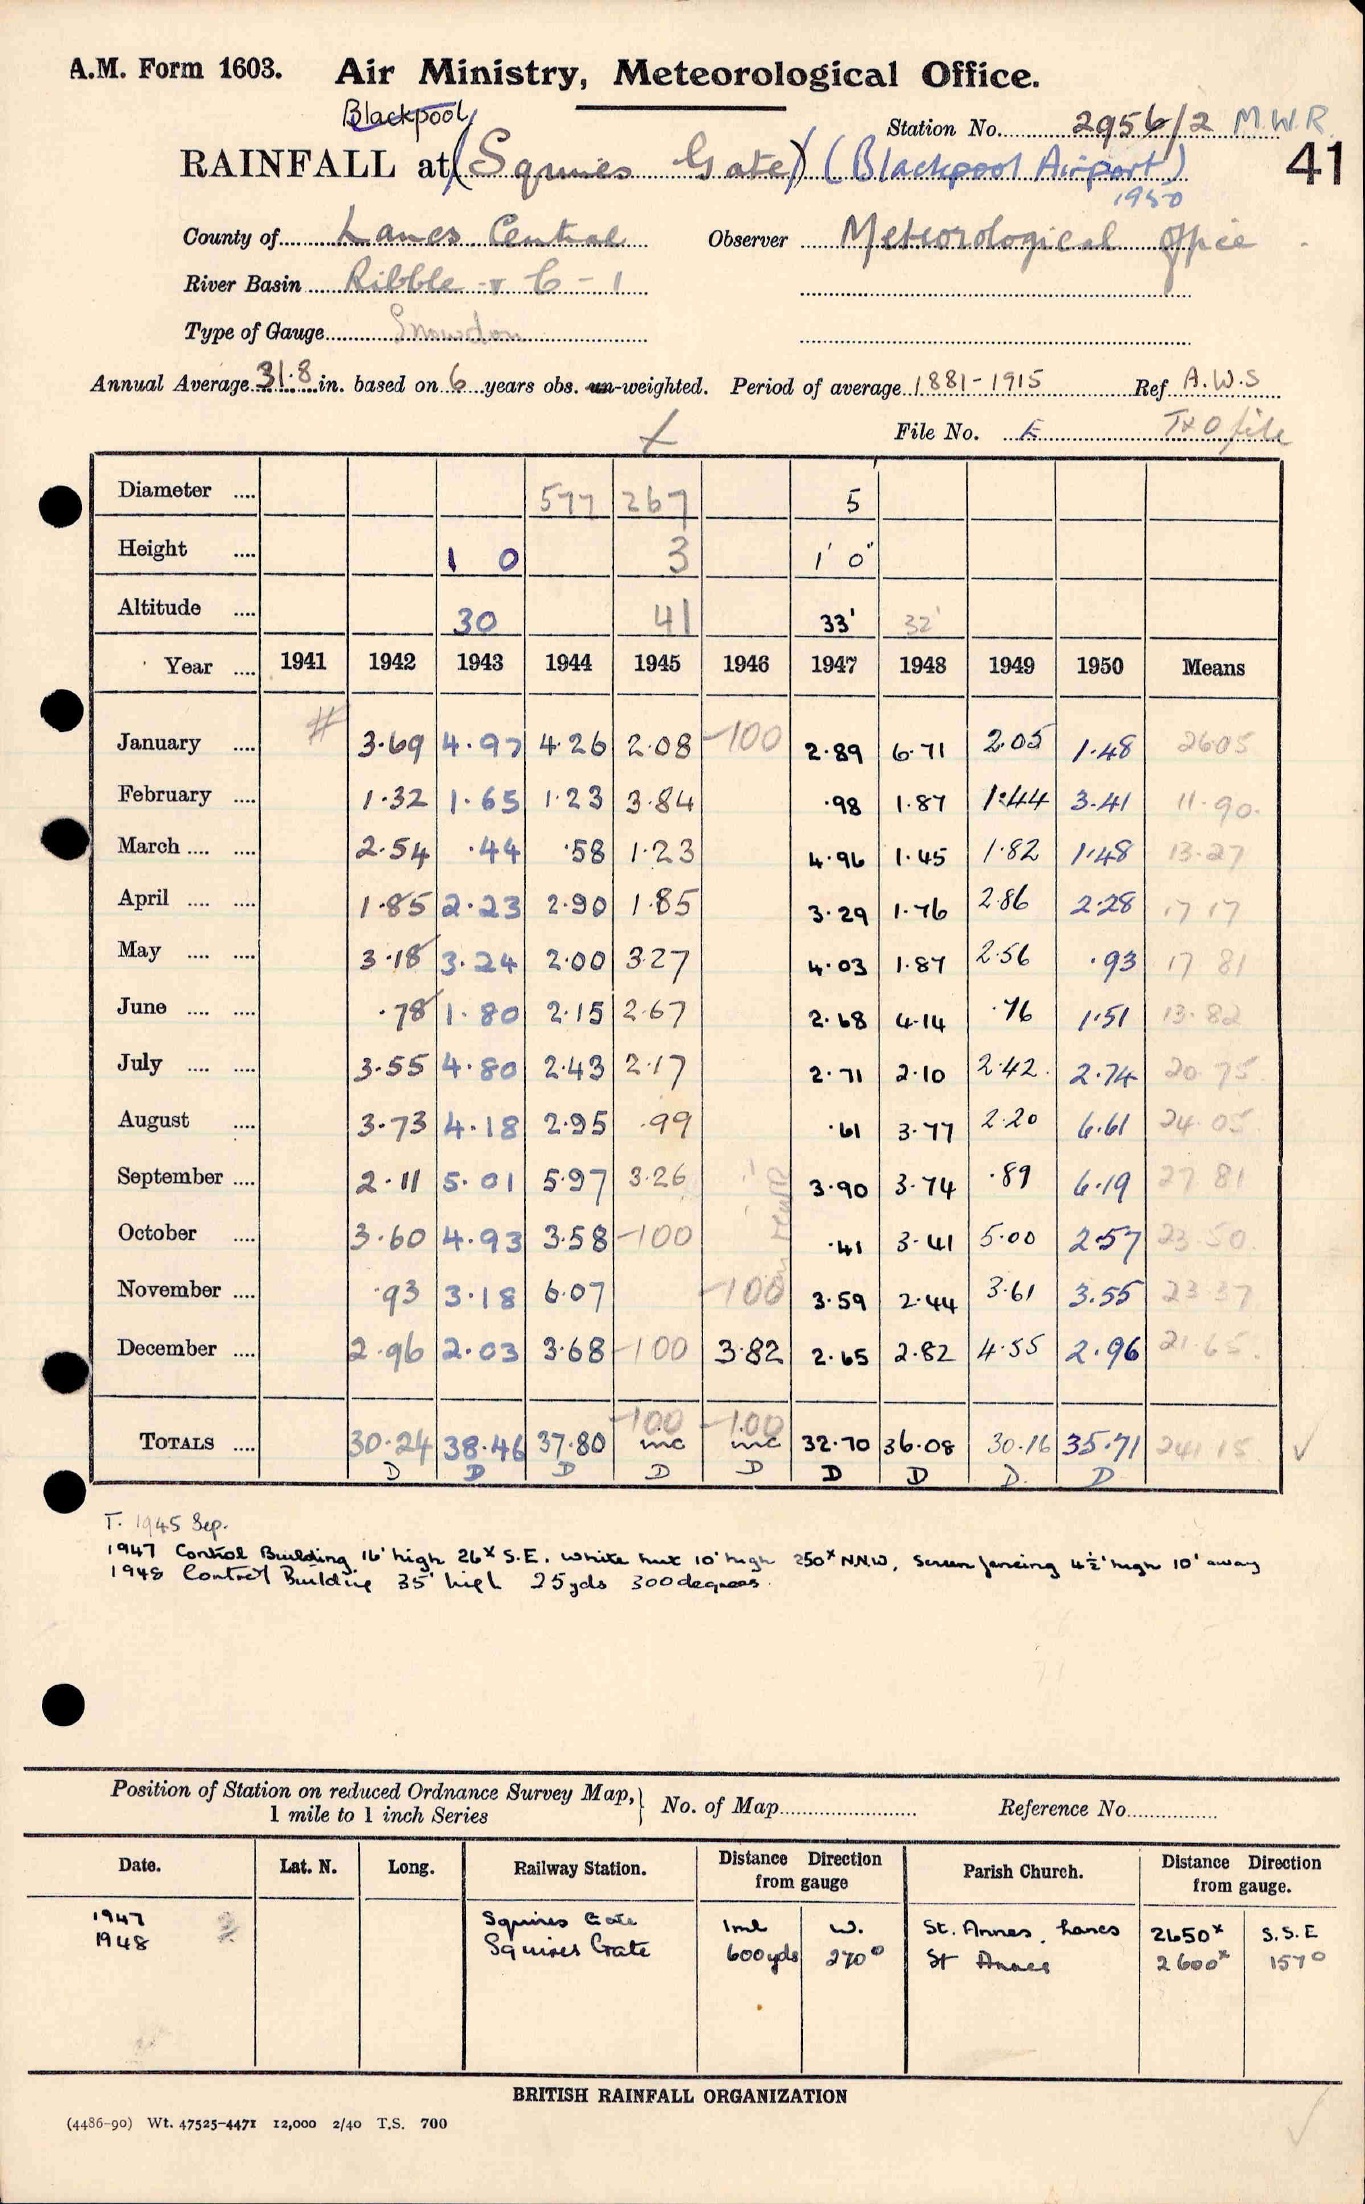 A.M. Form 1603. Air Ministry, Meteorological Office.
Blackpool
Station No. 2956/2 M.W.R.
41
RAINFALL at (Squires Gate) (Blackpool Airport)
1950
County of Lancs Central Observer Meteorological Office
River Basin Ribble
Type of Gauge Snowdon
Annual Average 31.8 in. based on 6 years obs. un-weighted. Period of average 1881-1915 Ref A.W.S
File No. E
Diameter .... 577 267 5
Height .... 1 0 3 1' 0"
Altitude .... 30 41 33' 32'
Year .... 1941 1942 1943 1944 1945 1946 1947 1948 1949 1950 Means
January .... # 3.69 4.97 4.26 2.08 -100 2.89 6.71 2.05 1.48 26.05
February .... 1.32 1.65 1.23 3.84 .98 1.87 1.44 3.41 11.90
March .... .... 2.54 .44 .58 1.23 4.96 1.45 1.82 1.48 13.27
April .... .... 1.85 2.23 2.90 1.85 3.29 1.76 2.86 2.28 17 17
May .... .... 3.18 3.24 2.00 3.27 4.03 1.87 2.56 .93 17 81
June .... .... .78 1.80 2.15 2.67 2.68 4.14 .76 1.51 13.82
July .... .... 3.55 4.80 2.43 2.17 2.71 2.10 2.42 2.74 20.75
August .... 3.73 4.18 2.95 .99 .61 3.77 2.20 6.61 24.05
September .... 2.11 5.01 5.97 3.26 3.90 3.74 .89 6.19 27 81
October .... 3.60 4.93 3.58 -100 .41 3.41 5.00 2.57 23.50
November .... .93 3.18 6.07 -100 3.59 2.44 3.61 3.55 23.37
December .... 2.96 2.03 3.68 -100 3.82 2.65 2.82 4.55 2.96 21.65
-100 -100
TOTALS .... 30.24 38.46 37.80 inc inc 32.70 36.08 30.16 35.71 241 15
D D D D D D D D. D
T. 1945 Sep.
1947 Control Building 16' high 26x S.E. White hut 10' high 250x N.N.W, Screen fencing 4½' high 10' away
1948 Control Building 35' high 25yds 300 degrees.
Position of Station on reduced Ordnance Survey Map,
1 mile to 1 inch Series
No. of Map Reference No.
Date. Lat. N. Long. Railway Station. Distance Direction from gauge Parish Church. Distance Direction from gauge.
1947 Squires Gate 1ml W. St. Annes, Lancs 2650x S.S.E
1948 Squires Gate 600yds 270° St Annes 2600x 157°
BRITISH RAINFALL ORGANIZATION
(4486-90) Wt. 47525-4471 12,000 2/40 T.S. 700